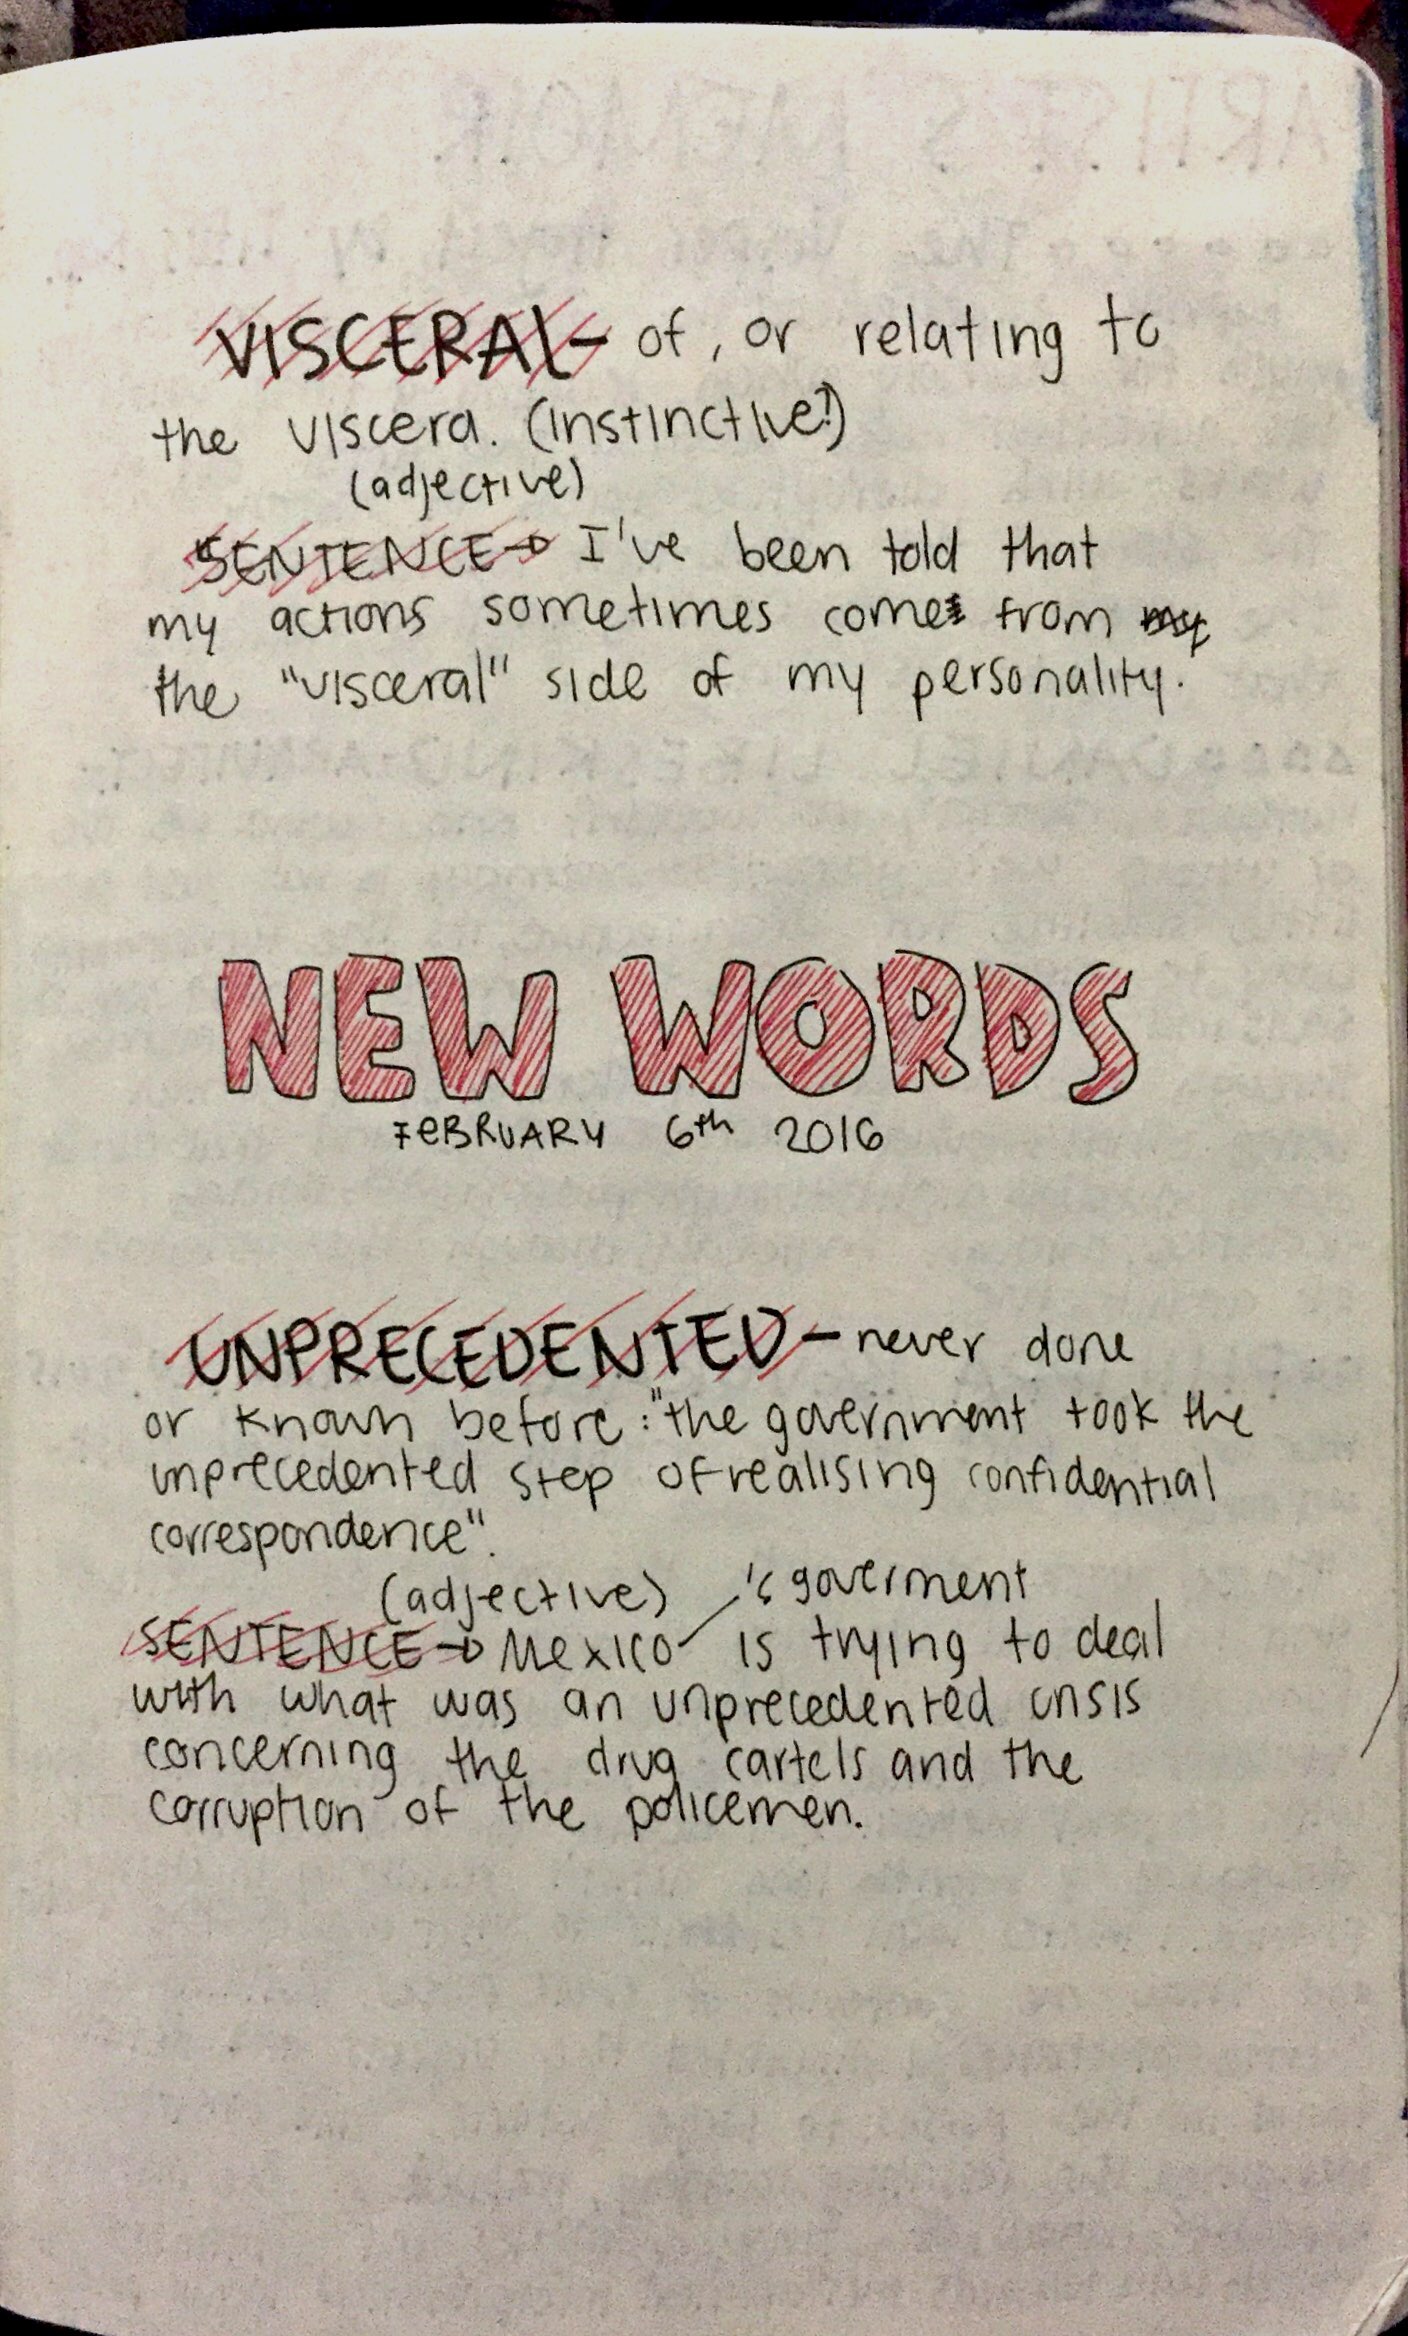 VISCERAL- of, or relating to
the viscera. (instinctive?)
(adjective)
SENTENCE→ I've been told that
my actions sometimes come from my
the "visceral" side of my personality.
NEW WORDS
FEBRUARY 6th 2016
UNPRECEDENTED - never done
or known before: "the government took the
unprecedented step of realising confidential
correspondence".
(adjective) 's goverment
SENTENCE→ Mexico is trying to deal
with what was an unprecedented crisis
concerning the drug cartels and the
corruption of the policemen.